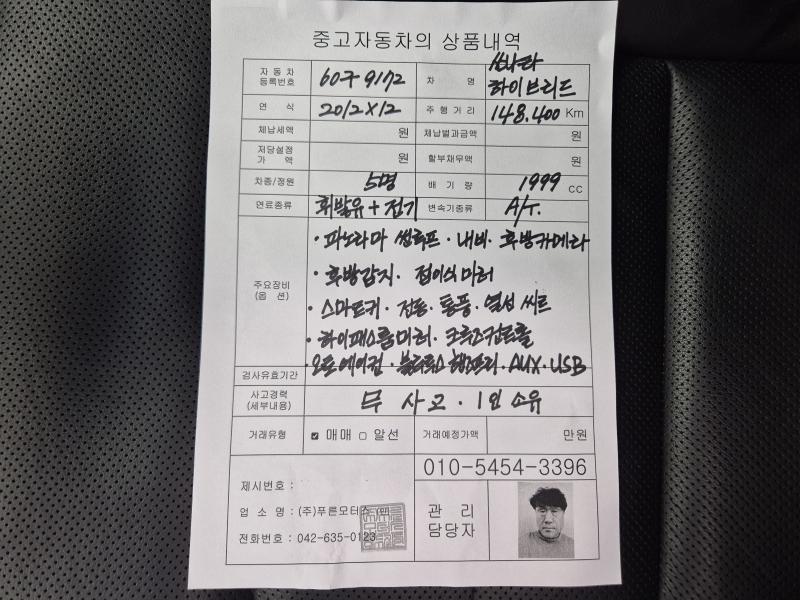 중고자동차의 상품내역
자동차 등록번호 60구 9172 차 명 쏘나타 하이브리드
연 식 2012 X 12 주행거리 148.400 Km
체납세액 원 체납벌과금액 원
저당설정 가 액 원 할부채무액 원
차종/정원 5명 배 기 량 1999 CC
연료종류 휘발유 + 전기 변속기종류 A/T.
주요장비 (옵 션)
· 파노라마 썬루프 · 내비 · 후방카메라
· 후방감지 · 접이식 미러
· 스마트키 · 전동 · 통풍 · 열선 씨트
· 하이패스룸미러 · 크루즈컨트롤
· 오토에어컨 · 블루투스 핸즈프리 · AUX · USB
검사유효기간
사고경력 (세부내용) 무 사고 · 1인 소유
거래유형 매매 알선 거래예정가액 만원
010-5454-3396
제시번호 :
업 소 명 : (주)푸른모터스 (인)
전화번호 : 042-635-0123
관 리 담당자